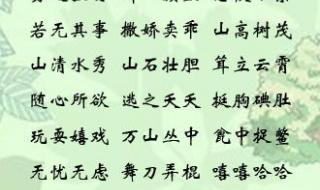 若无其事 撒娇卖乖 山高树茂
山清水秀 山石壮胆 耸立云霄
随心所欲 逃之夭夭 挺胸碘肚
玩耍嬉戏 万山丛中 瓮中捉鳖
无忧无虑 舞刀弄棍 嘻嘻哈哈